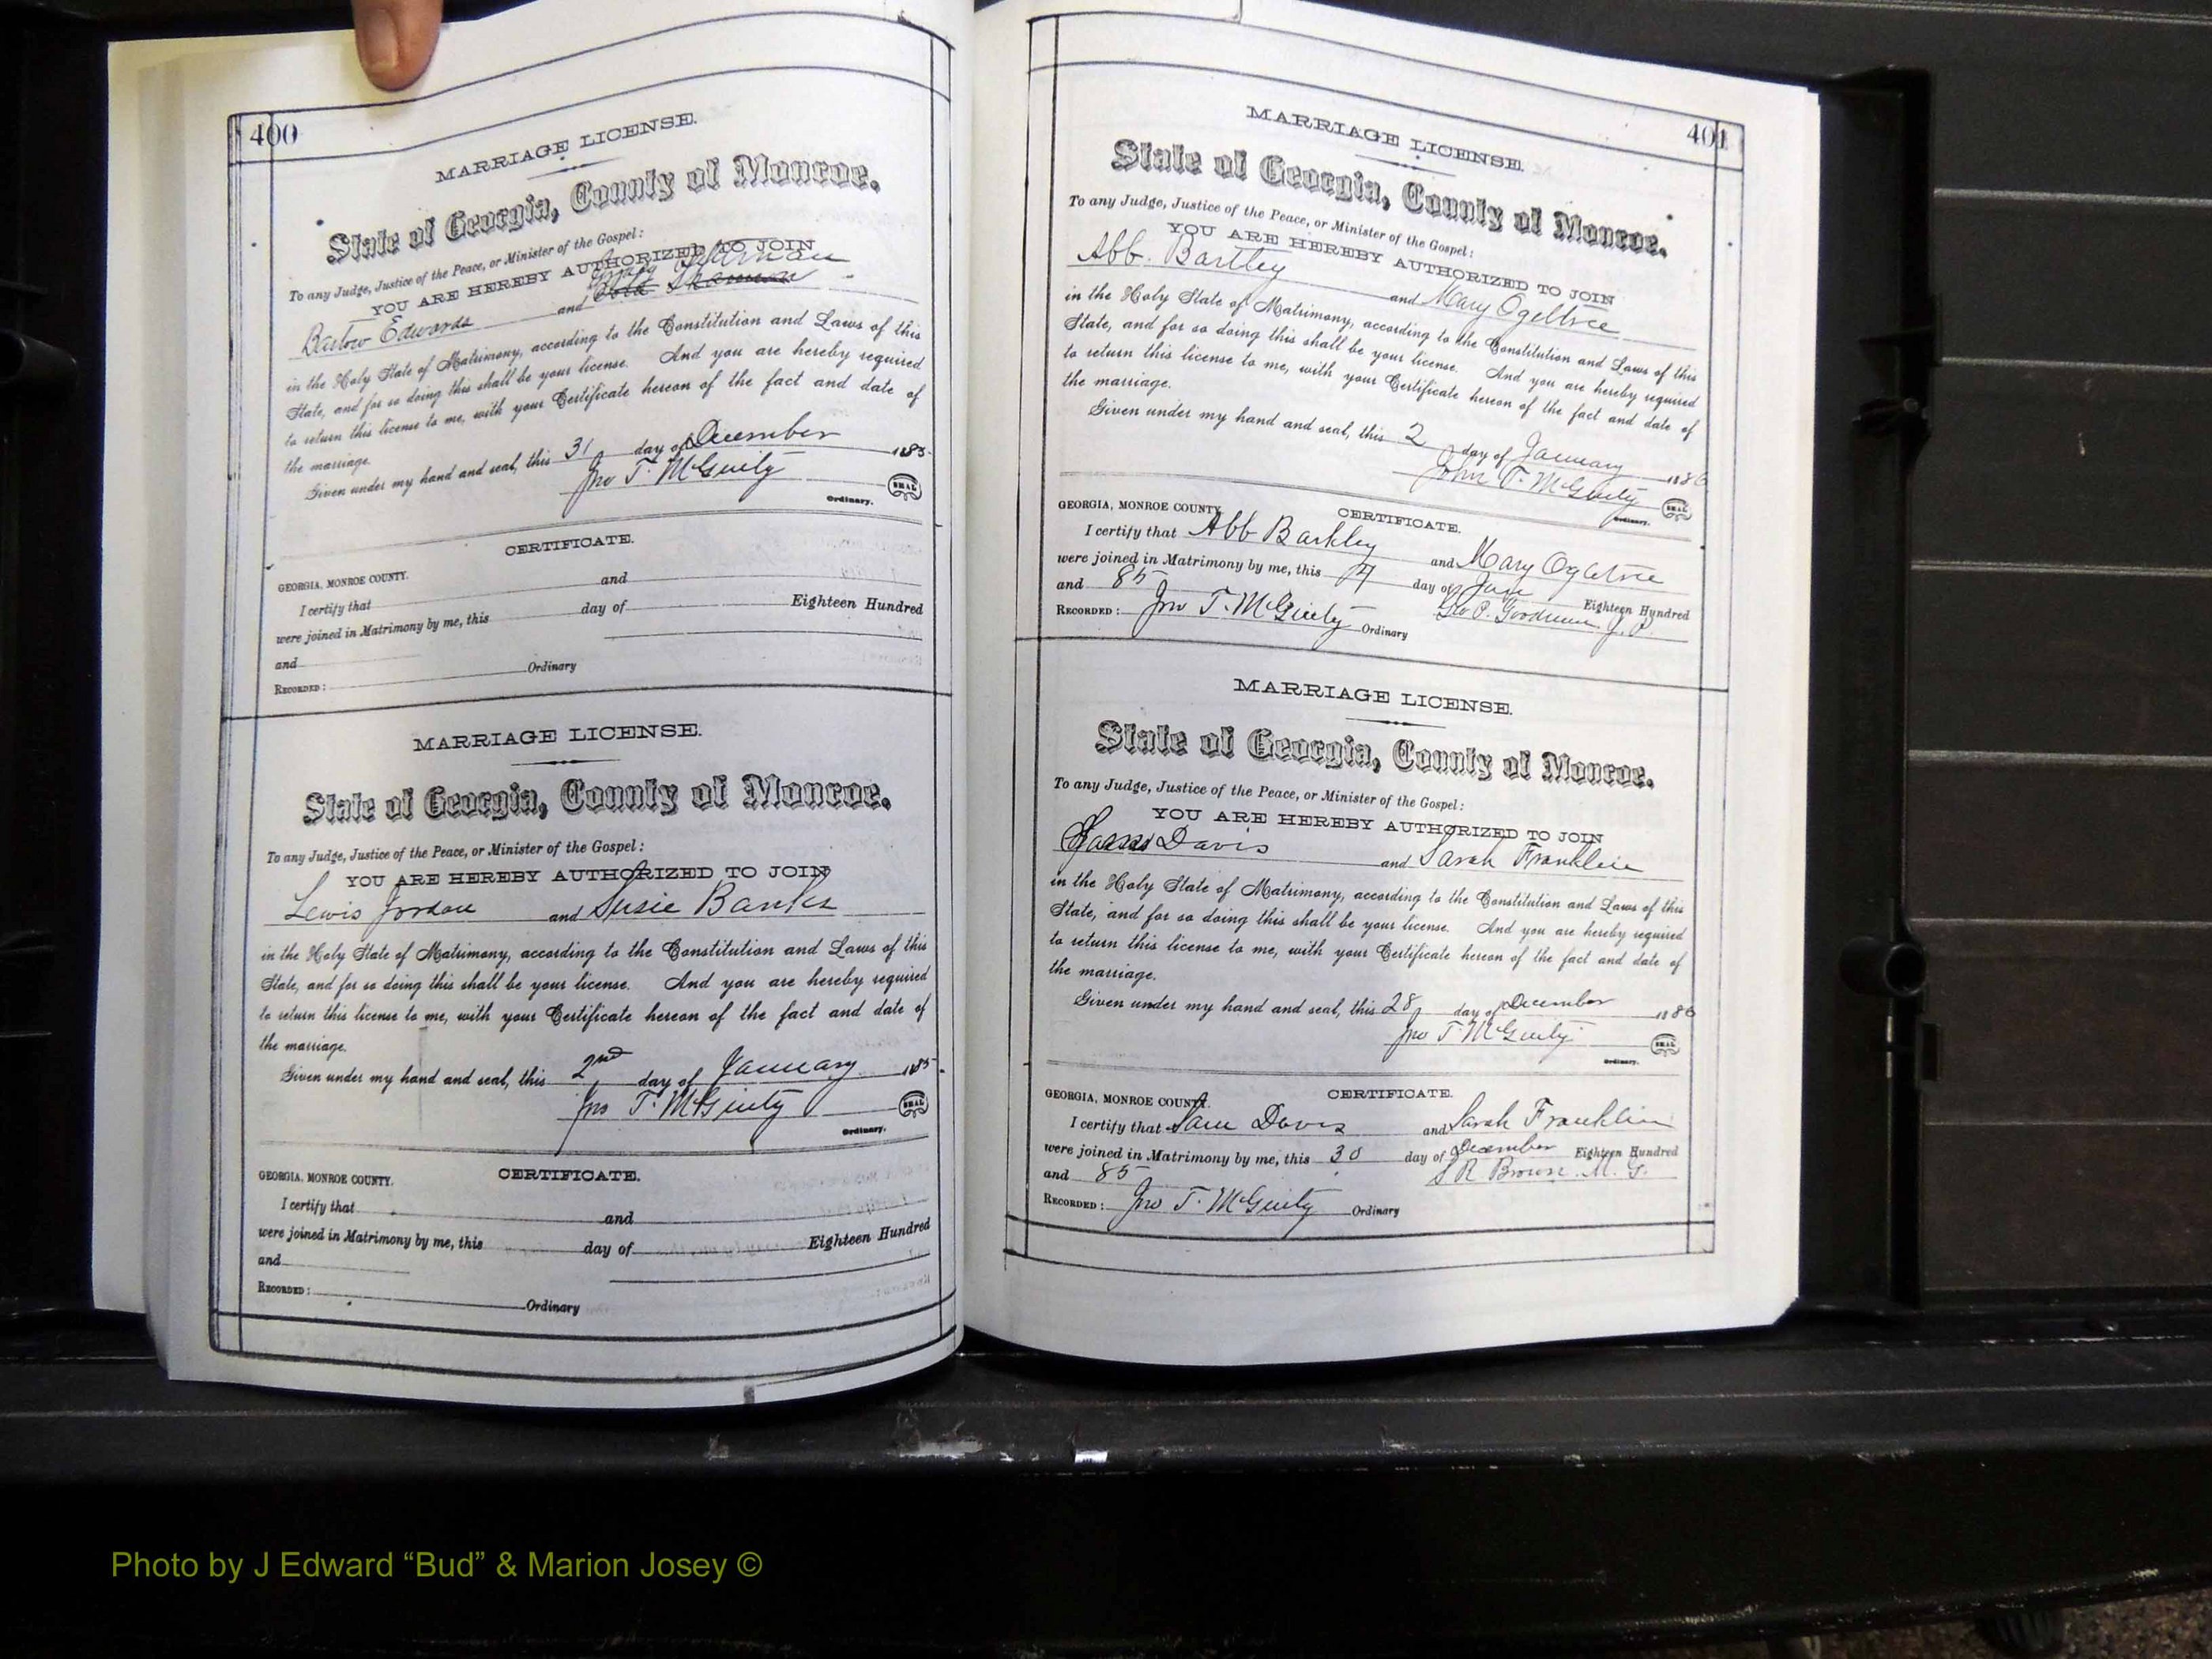 400
MARRIAGE LICENSE.
State of Georgia, County of Monroe.
To any Judge, Justice of the Peace, or Minister of the Gospel:
YOU ARE HEREBY AUTHORIZED TO JOIN
Barlow Edwards and
in the Holy State of Matrimony, according to the Constitution and Laws of this
State, and for so doing this shall be your license. And you are hereby required
to return this license to me, with your Certificate hereon of the fact and date of
the marriage.
Given under my hand and seal, this 31 day of December 1885
Jno T. McGinty SEAL
Ordinary.
CERTIFICATE.
GEORGIA, MONROE COUNTY.
I certify that and
were joined in Matrimony by me, this day of Eighteen Hundred
and
RECORDED: Ordinary
MARRIAGE LICENSE.
State of Georgia, County of Monroe.
To any Judge, Justice of the Peace, or Minister of the Gospel:
YOU ARE HEREBY AUTHORIZED TO JOIN
Lewis Jordan and Susie Banks
in the Holy State of Matrimony, according to the Constitution and Laws of this
State, and for so doing this shall be your license. And you are hereby required
to return this license to me, with your Certificate hereon of the fact and date of
the marriage.
Given under my hand and seal, this 2nd day of January 1885
Jno T. McGinty SEAL
Ordinary.
CERTIFICATE.
GEORGIA, MONROE COUNTY.
I certify that and
were joined in Matrimony by me, this day of Eighteen Hundred
and
RECORDED: Ordinary
401
MARRIAGE LICENSE.
State of Georgia, County of Monroe.
To any Judge, Justice of the Peace, or Minister of the Gospel:
YOU ARE HEREBY AUTHORIZED TO JOIN
Abb. Bartley and Mary Ogeltree
in the Holy State of Matrimony, according to the Constitution and Laws of this
State, and for so doing this shall be your license. And you are hereby required
to return this license to me, with your Certificate hereon of the fact and date of
the marriage.
Given under my hand and seal, this 2 day of January 1886
John T. McGinty SEAL
Ordinary.
GEORGIA, MONROE COUNTY. CERTIFICATE.
I certify that Abb Barkley and Mary Ogletree
were joined in Matrimony by me, this day of Jany Eighteen Hundred
and 85 J. P.
RECORDED: Jno T. McGinty Ordinary
MARRIAGE LICENSE.
State of Georgia, County of Monroe.
To any Judge, Justice of the Peace, or Minister of the Gospel:
YOU ARE HEREBY AUTHORIZED TO JOIN
Davis and Sarah Franklin
in the Holy State of Matrimony, according to the Constitution and Laws of this
State, and for so doing this shall be your license. And you are hereby required
to return this license to me, with your Certificate hereon of the fact and date of
the marriage.
Given under my hand and seal, this 28 day of December 1886
Jno T. McGinty SEAL
Ordinary.
GEORGIA, MONROE COUNTY. CERTIFICATE.
I certify that Sam Davis and Sarah Franklin
were joined in Matrimony by me, this 30 day of December Eighteen Hundred
and 85 S R Brown M. G.
RECORDED: Jno T. McGinty Ordinary
Photo by J Edward “Bud” & Marion Josey ©